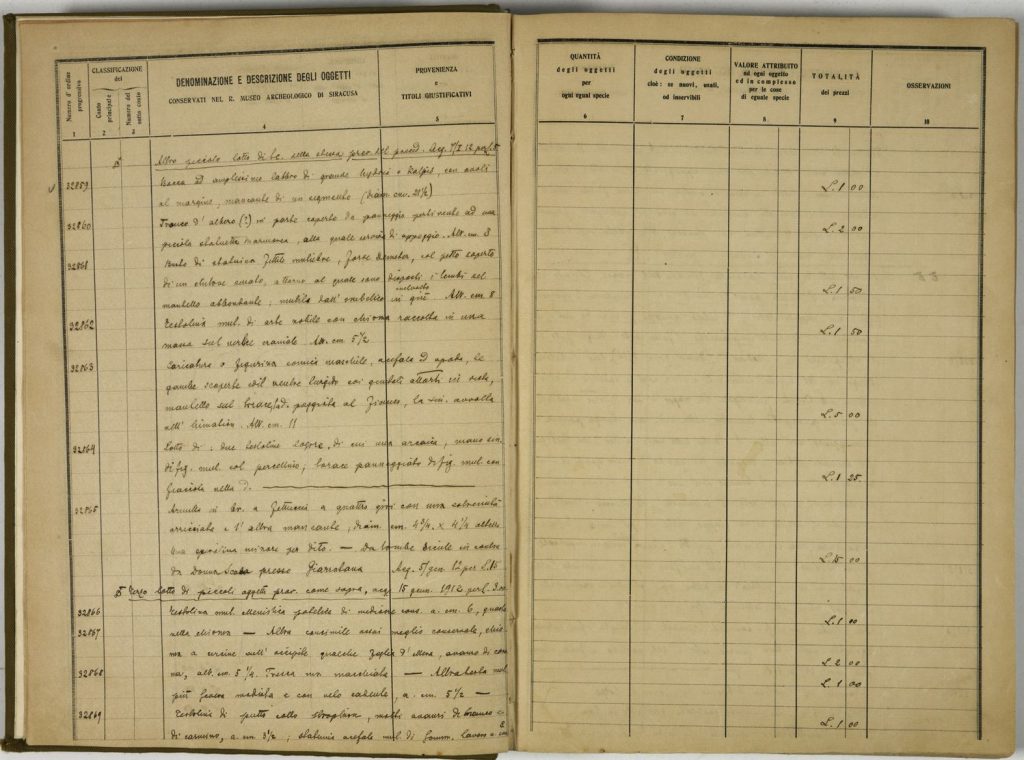 Numero d'ordine progressivo
CLASSIFICAZIONE del
Conto principale
Numero del sotto conto
DENOMINAZIONE E DESCRIZIONE DEGLI OGGETTI
CONSERVATI NEL R. MUSEO ARCHEOLOGICO DI SIRACUSA
PROVENIENZA
e
TITOLI GIUSTIFICATIVI
1 2 3 4 5
Altro piccolo lotto di tc. della stessa prov. del preced. Acq.
32859 Bocca ad amplissimo labbro di grande hydria o kalpis, con ovoli
al margine, mancante di un segmento (diam. cm. 21½)
32860 Tronco d'albero (?) in parte coperto da panneggio pertinente ad una
piccola statuetta marmorea, alla quale serviva di appoggio. Alt. cm. 8
32861 Busto di statuina fittile muliebre, forse Demeter, col petto coperto
di un chitone, attorno al quale sono disposti i lembi del
mantello abbondante; mutila dall'ombelico in giù. Alt. cm. 8
32862 Testolina mul. di arte nobile con chioma raccolta in una
massa sul vertice craniale Alt. cm. 5½
32863 Caricatura o figurina comica maschile, acefala ed apoda, le
gambe scoperte ed il ventre turgido
mantello sul poggiata al fianco, la sin. avvolta
nell'himation. Alt. cm. 11
32864 Lotto di: due testoline logore, di cui una arcaica, mano sin.
di fig. mul. col porcellino, torace panneggiato di fig. mul. con
fiaccola nella d.
32865 Armilla in br. a fettuccia a quattro giri con una estremità
arricciata e l'altra mancante, diam. cm. 4¾ × 4¼
da dito. — Da tombe sicule in
da Donna presso Giarratana Acq. 5/gen. 12 per L. 15
Terzo lotto di piccoli oggetti prov. come sopra, acq. 15 genn. 1912 per L.
32866 Testolina mul. di mediocre cons. a. cm. 6, guasta
32867 nella chioma — Altra consimile assai meglio conservata,
sull'occipite qualche foglia d'
32868 alt. cm. 5 ¼. — Altra testa mul.
più e con velo cadente, a. cm. 5½ —
32869 Testolina di putto collo
di carmino, a. cm. 3½; statuina acefala mul. di
QUANTITÀ
degli oggetti
per
ogni egual specie
CONDIZIONE
degli oggetti
cioè: se nuovi, usati,
od inservibili
VALORE ATTRIBUITO
ad ogni oggetto
ed in complesso
per le cose
di eguale specie
TOTALITÀ
dei prezzi
OSSERVAZIONI
6 7 8 9 10
L. 1 00
L. 2 00
L. 1 50
L. 1 50
L. 5 00
L. 1 25
L. 15 00
L. 1 00
L. 2 00
L. 1 00
L. 1 00